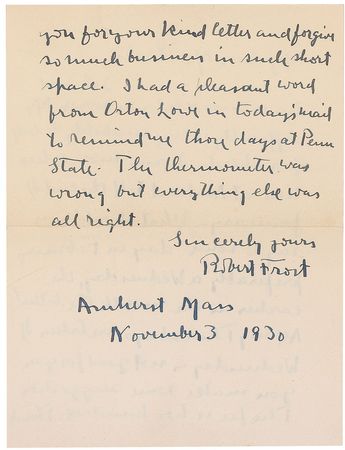 you for your kind letter and forgive
so much business in such short
space. I had a pleasant word
from Orton Lowe in today's mail
to remind me those days at Penn
State. The thermometer was
wrong but everything else was
all right.
Sincerely yours
Robert Frost
Amherst Mass
November 3 1930